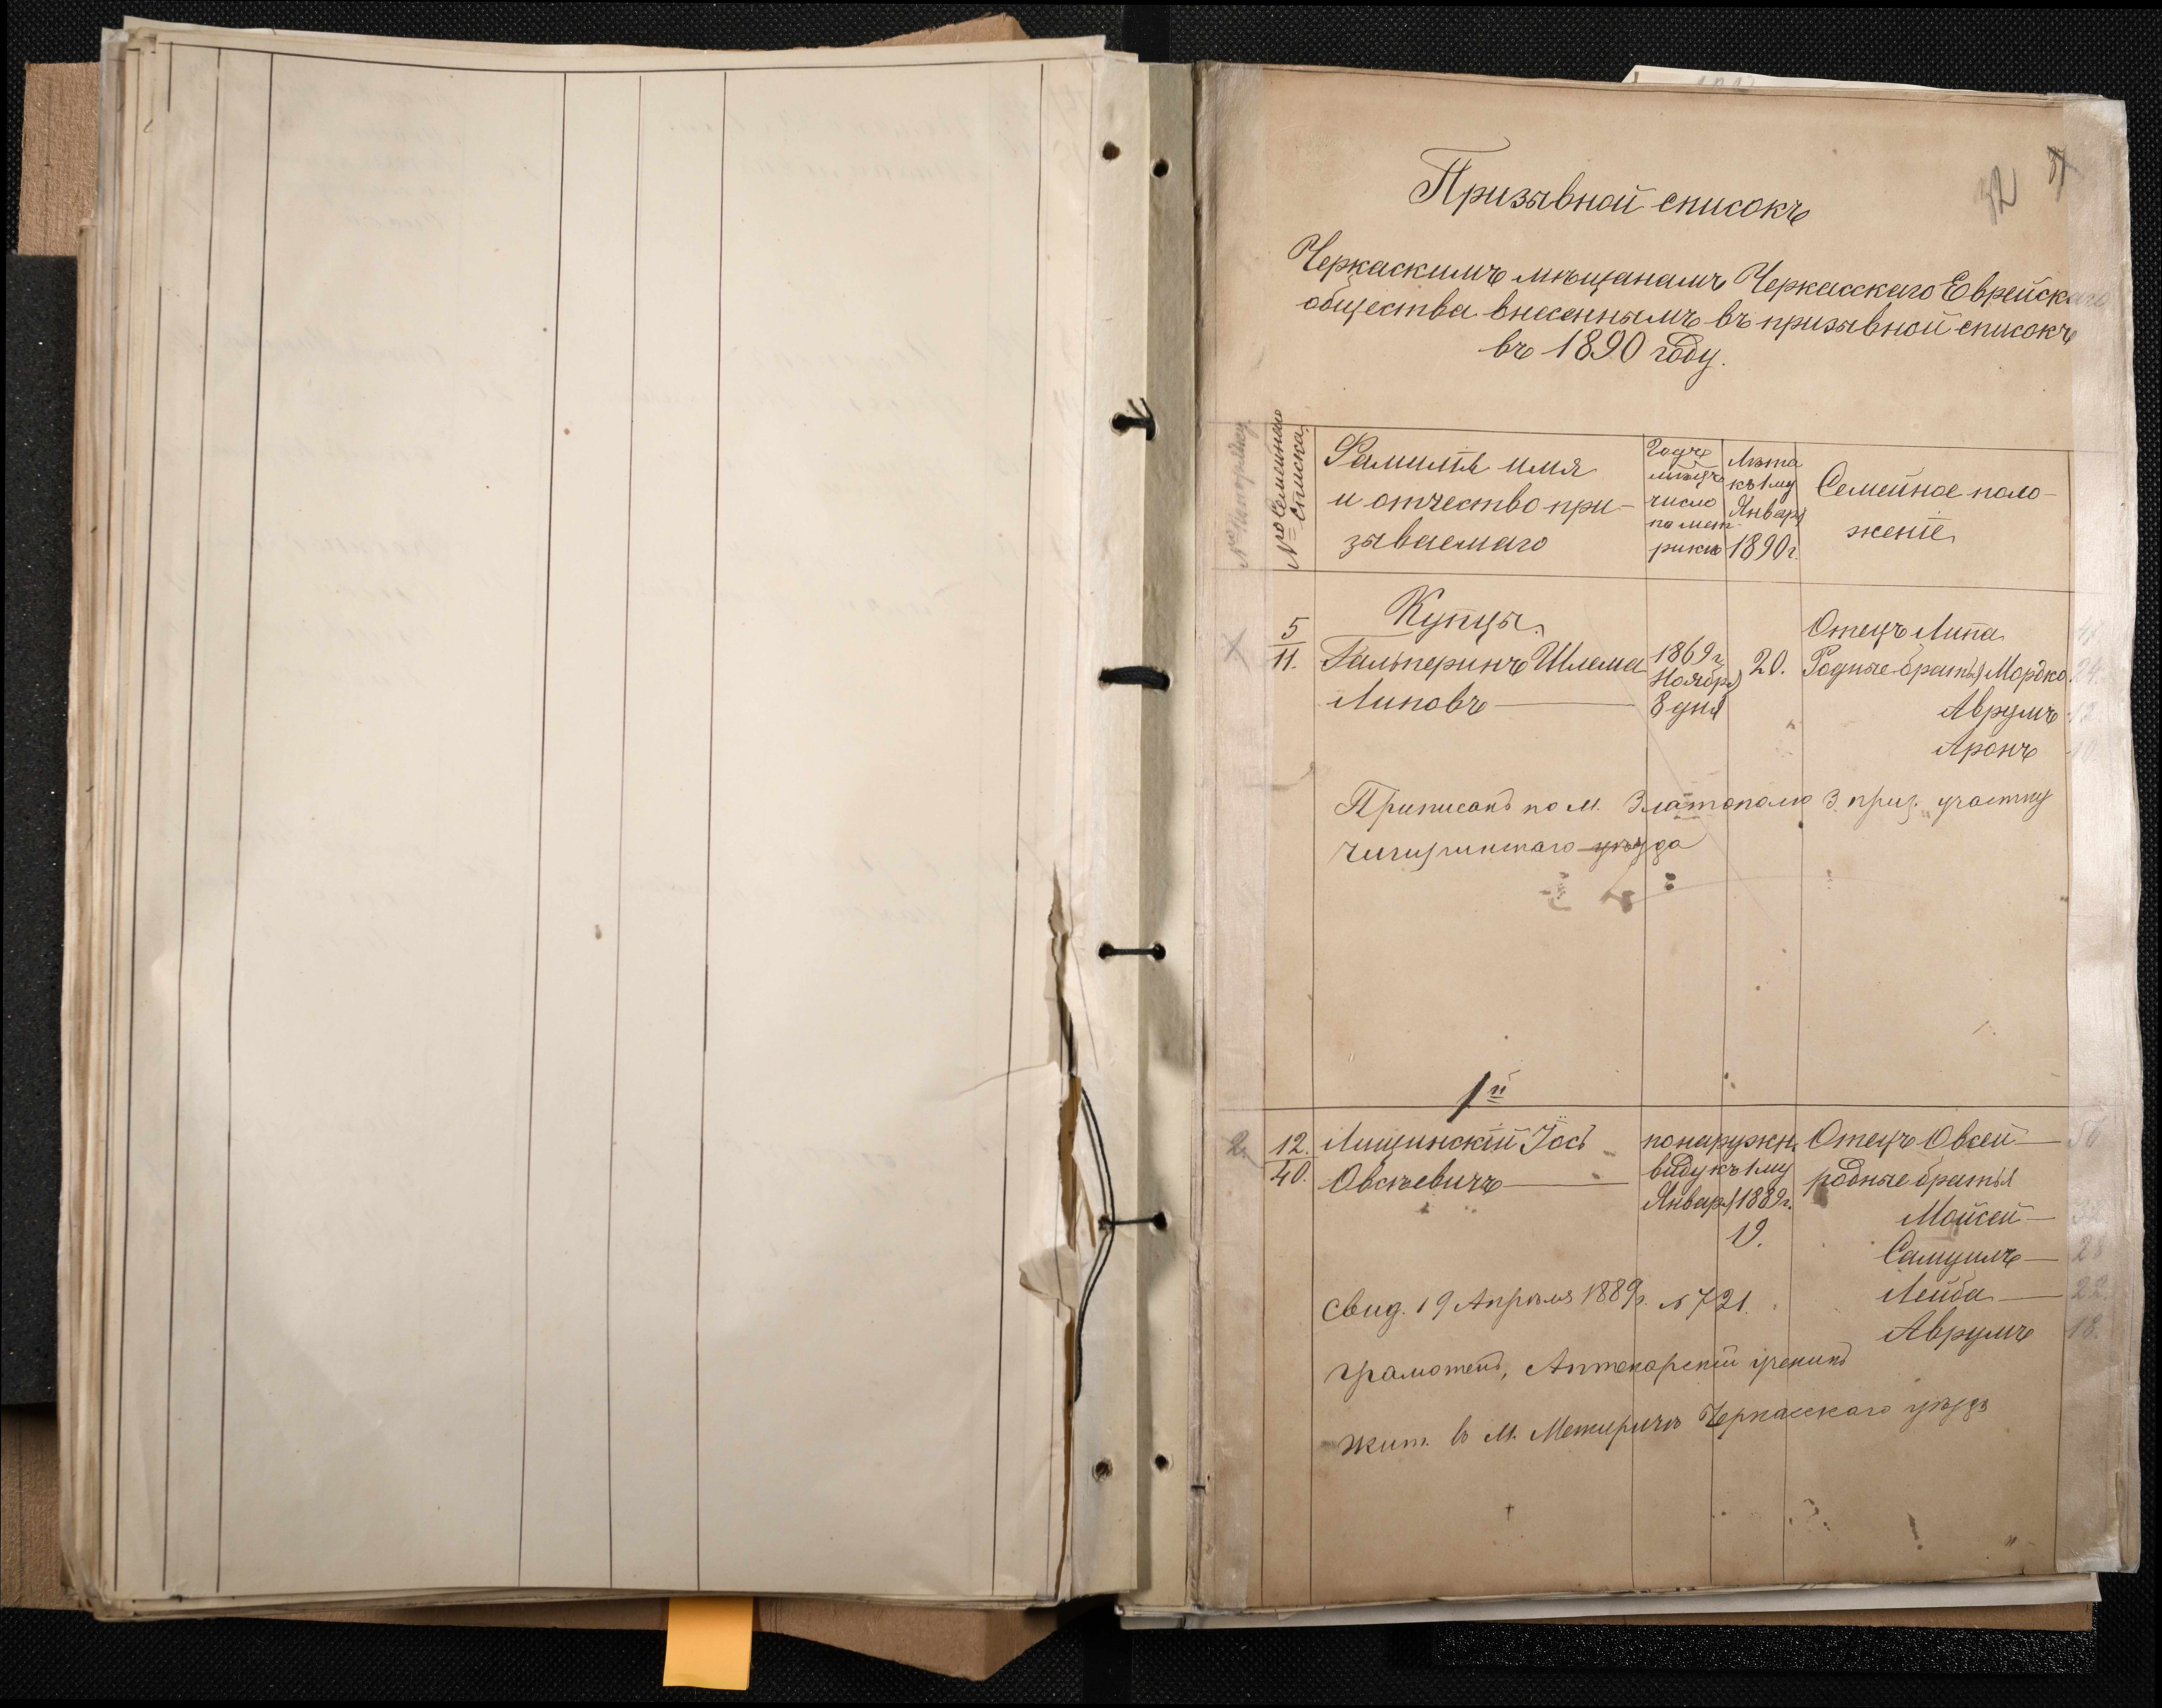 32 31
Призывной списокъ
Черкаскимъ мѣщанамъ Черкасскаго Еврейскаго
общества внесеннымъ въ призывной списокъ
въ 1890 году.
№ по порядку
№ семейнаго списка.
Фамилія имя и отчество призываемаго
Годъ мѣсяцъ число по метрикѣ
Лѣта къ 1му Января 1890 г.
Семейное положеніе
Купцы.
Х 5/11. Гальперинъ Шлема Липовъ
1869 г. Ноября 8 дня
20.
Отецъ Липа
Родные братья Мордко 24.
Аврумъ 12
Аронъ 10
Приписанъ по м. Златополю 3 приз. участку
Чигиринскаго уѣзда
1й
2. 12./40. Лищинскій Іось Овсѣевичъ
по наружн. виду къ 1му Января 1889 г. 19.
Отецъ Овсей — 56
родные братья
Мойсей —
Самуилъ — 28
Лейба — 22.
Аврумъ 18.
Свид. 19 Апрѣля 1889 г. № 721.
Грамотенъ, Аптекарскій ученикъ
Жит. в м. Межиричѣ Черкасскаго уѣзда